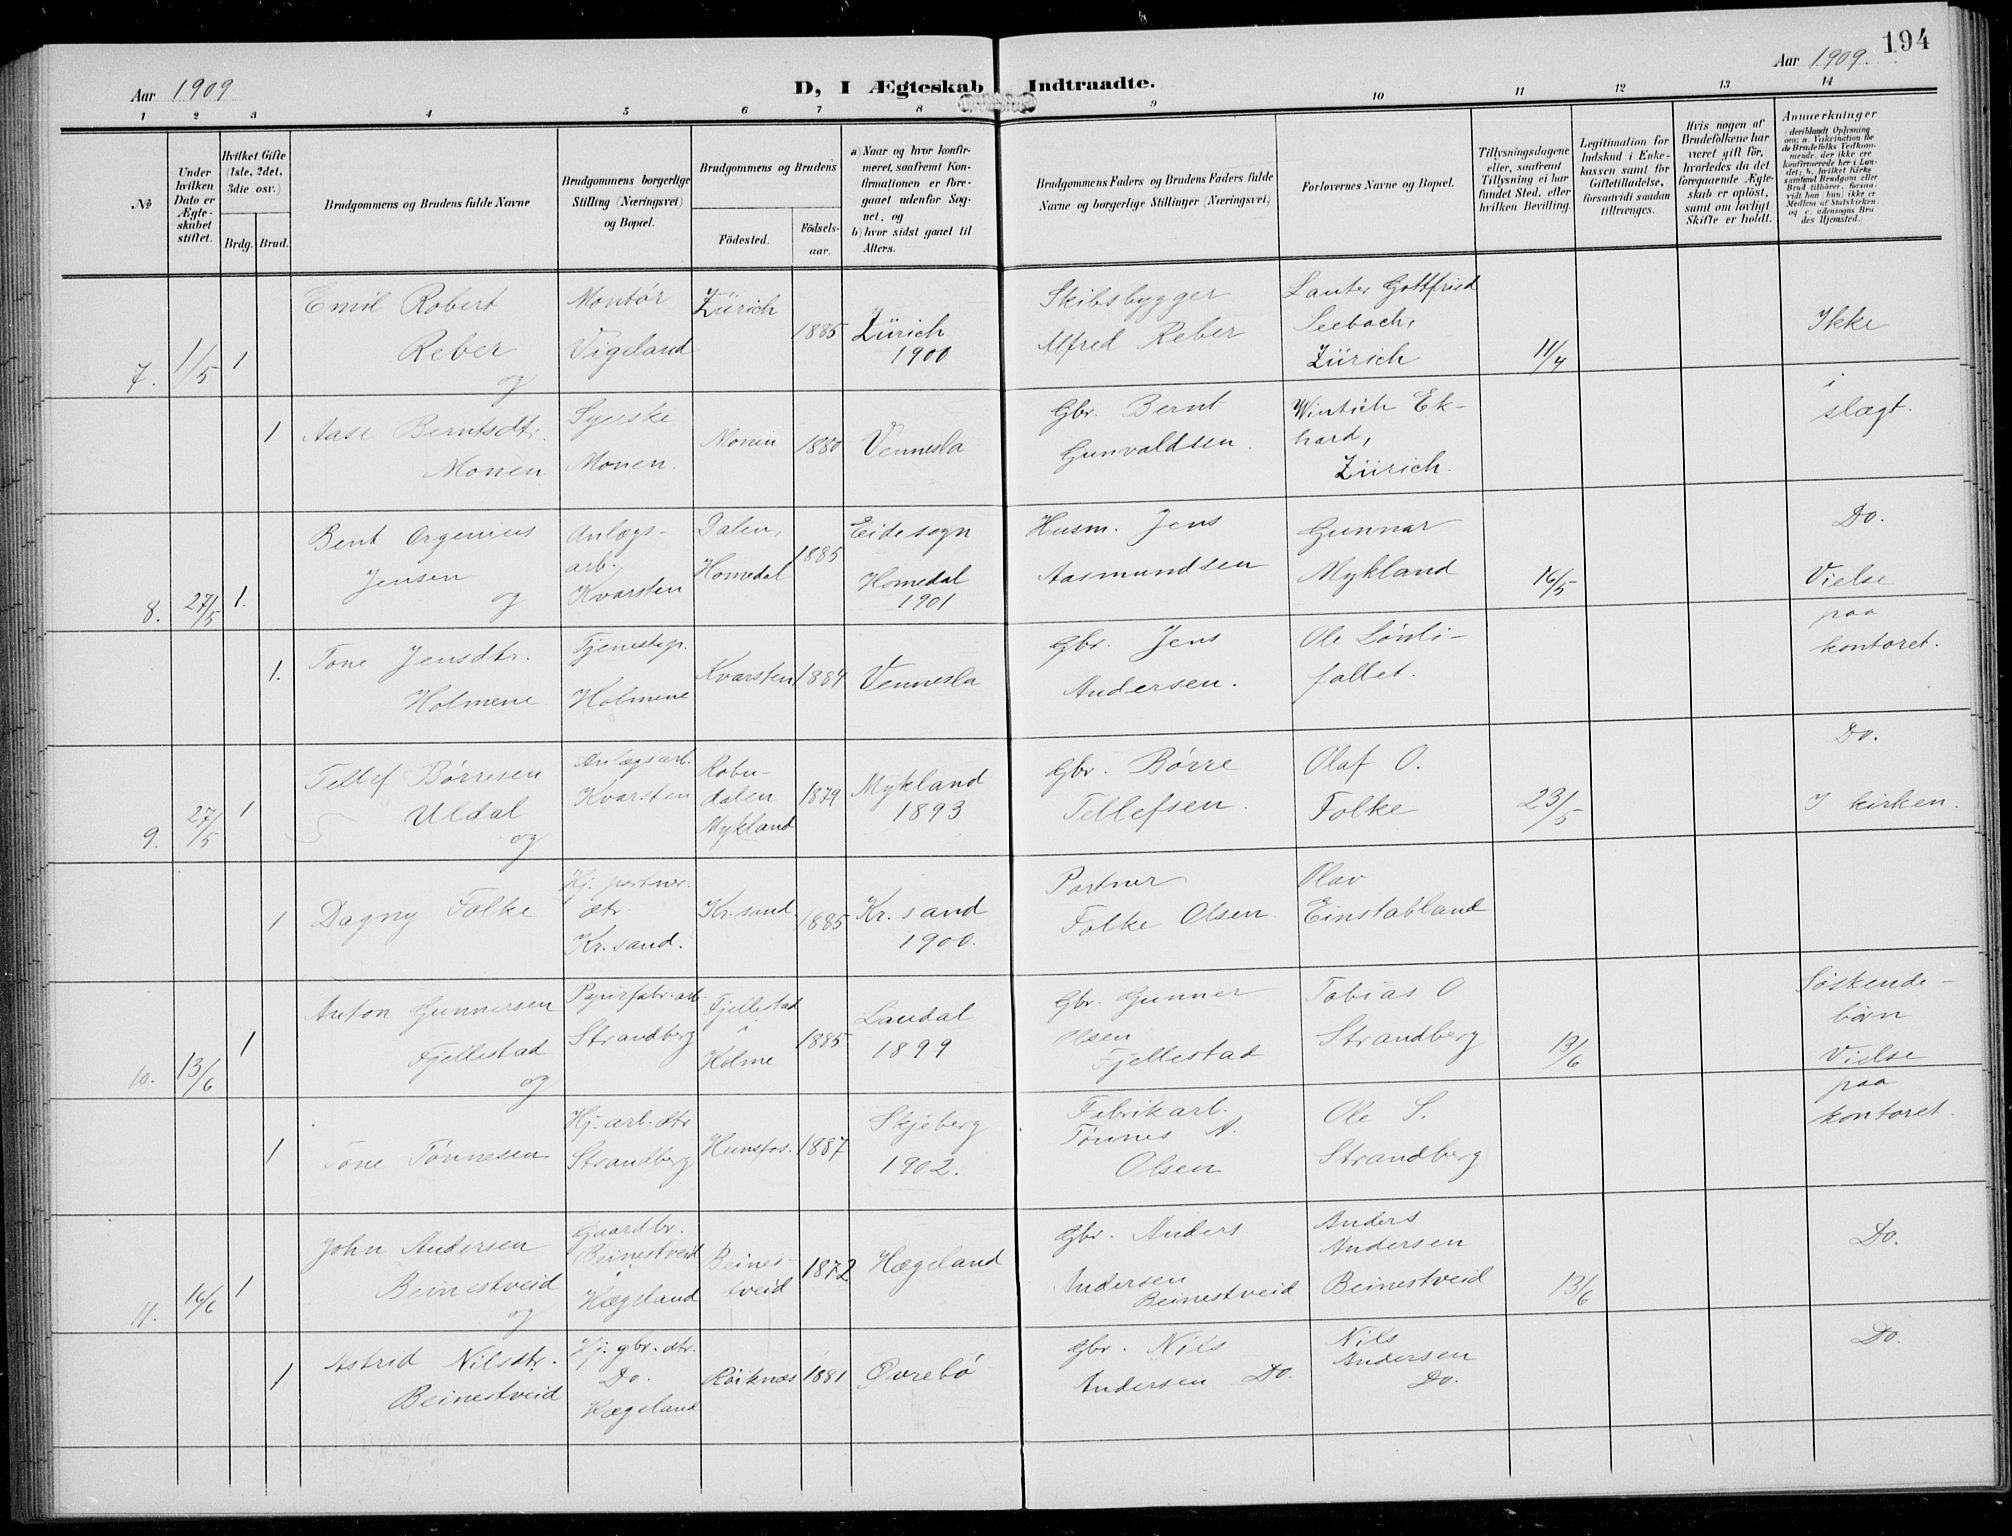 194
Aar 1909
D, I Ægteskab Indtraadte.
Aar 1909.
1 2 3 4 5 6 7 8 9 10 11 12 13 14
No
Under
hvilken
Dato er
Ægte-
skabet
stiftet.
Hvilket Gifte
(1ste, 2det,
3die osv.)
Brdg. Brud.
Brudgommens og Brudens fulde Navne
Brudgommens borgerlige
Stilling (Næringsvei)
og Bopæl.
Brudgommens og Brudens
Födested.
Födsels-
aar.
a) Naar og hvor konfir-
meret, saafremt Kon-
firmationen er fore-
gaaet udenfor Sog-
net, og
b) hvor sidst gaaet til
Alters.
Brudgommens Faders og Brudens Faders fulde
Navne og borgerlige Stillinger (Næringsvei)
Forlovernes Navne og Bopæl.
Tillysningsdagene
eller, saafremt
Tillysning ei har
fundet Sted, efter
hvilken Bevilling.
Legitimation for
Indskud i Enke-
kassen samt for
Giftetilladelse,
forsaavidt saadan
tiltrænges.
Hvis nogen af
Brudefolkene har
været gift för,
hvorledes da det
foregaaende Ægte-
skab er oplöst,
samt om lovligt
Skifte er holdt.
Anmærkninger
(deriblandt Oplysning
om: a. Vakcination for
de Brudefolks Vedkom-
mende, der ikke ere
konfirmerede her i Lan-
det; b. hvilket Kirke-
samfund Brudgom eller
Brud tilhörer, forsaa-
vidt han (hun) ikke er
Medlem af Statskirken,
og c. udensogns Bru-
des Hjemsted.)
7. 1/5 1
Emil Robert
Reber
og
Montør
Vigeland
Zürich
1885
Zürich
1900
Skibsbygger
Alfred Reber
Lanter Gottfried
Seebach,
Zürich
11/4
Ikke
i
slægt.
1
Aase Berntsdtr.
Monen
Syerske
Monen.
Monen
1880
Vennesla
Gbr. Bernt
Gunvaldsen.
Wintsch Ek-
hard,
Zürich.
8. 27/5 1.
Bent Orgenius
Jensen
og
Anlægs-
arb.
Kvarsten
Dalen,
Homedal
1885
Eide sogn
Homedal
1901
Husm. Jens
Aasmundsen
Gunnar
Mykland
16/5
Do.
Vielse
paa
kontoret.
1.
Tone Jensdtr.
Holmene
Tjenestep.
Holmene
Kvarsten
1884
Vennesla
Gbr. Jens
Andersen.
Ole Lønli-
fallet.
9. 27/5 1
Tellef Børresen
Uldal
og
Anlægsarb.
Kvarsten
Robu-
dalen
Mykland
1879
Mykland
1893
Gbr. Børre
Tellefsen.
Olaf O.
Folke
23/5
Do.
I kirken.
1
Dagny Folke
Hj. portner.
dtr.
Kr. sand.
Kr. sand.
1885
Kr. sand
1900.
Portner
Folke Olsen
Olav
Einstabland
10. 13/6 1
Anton Gunnersen
Fjellestad
og
Papirfabr. arb.
Strandberg
Fjellestad
i
Holme
1885
Laudal
1899
Gbr. Gunner
Olsen
Fjellestad
Tobias O
Strandberg
13/6
Søskende-
børn
Vielse
paa
kontoret.
1
Tone Tønnesen
Hj. arb. dtr
Strandberg
Hunsfos.
1887
Skjeberg
1902.
Fabrikarb.
Tønnes A.
Olsen
Ole S.
Strandberg
11. 16/6 1
John Andersen
Beinestveid
og
Gaardbr.
Beinestveid
i
Hægeland
Beines-
tveid
1872
Hægeland
Gbr. Anders
Andersen
Beinestveid
Anders
Andersen
Beinestveid
13/6
Do.
1
Astrid Nilsdtr.
Beinestveid
Hj. gbr. dtr.
Do.
Hægeland
Röiknæs
1881
Øvrebö
Gbr. Nils
Andersen Do.
Nils
Andersen
Do.
Do.